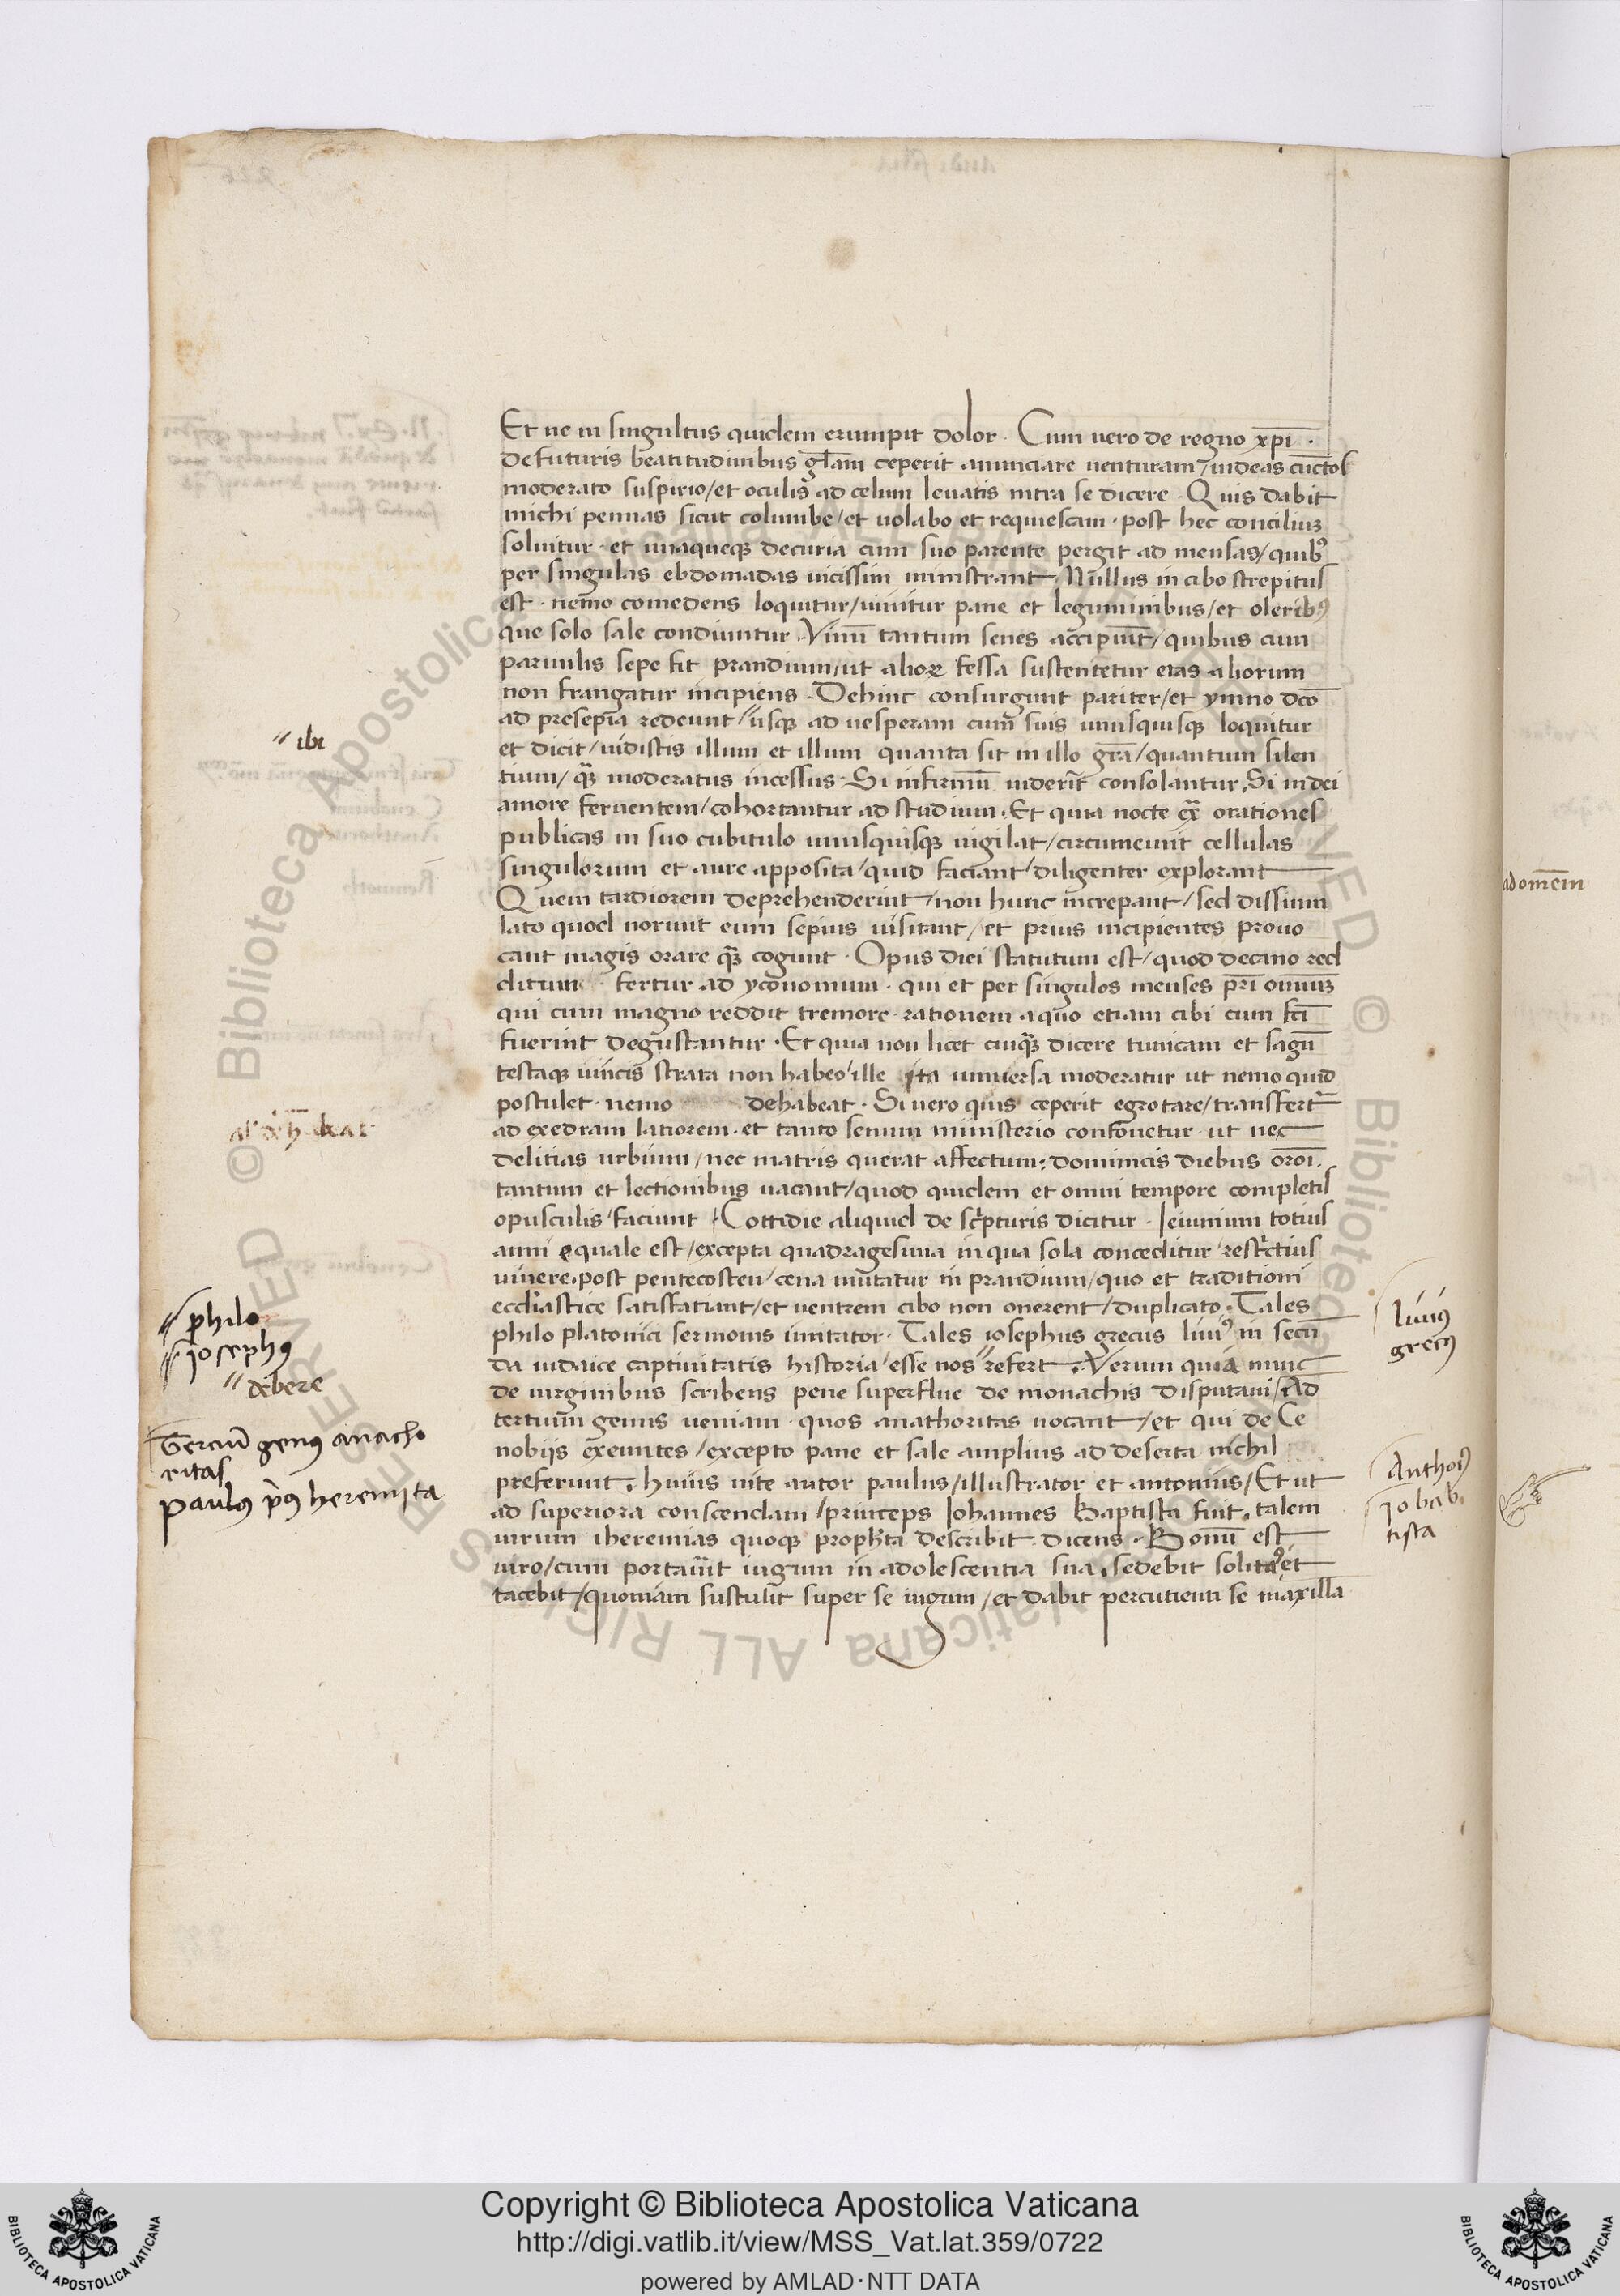 Et ne in singultus quidem erumpit dolor. Cum uero de regno xp̄i.
de futuris beatitudinibus gl̄am ceperit anunciare uenturam/uideas cunctos
moderato suspirio/et oculis ad celum leuatis intra se dicere. Quis dabit
michi pennas sicut columbe/et uolabo et requiescam. post hec conciliuꝫ
soluitur. et unaqueqꝫ decuria cum suo parente pergit ad mensas/quibꝰ
per singulas ebdomadas uicissim ministrant. Nullus in cibo strepitus
est. nemo comedens loquitur/uiuitur pane et leguminibus/et oleribꝰ
que solo sale condiuntur. Vinū tantum senes accipiūt/quibus cum
paruulis sepe fit prandium/ut alioꝝ fessa sustentetur etas aliorum
non frangatur incipiens. Dehinc consurgunt pariter/et ymno dc̄o
ad presepia redeunt//usqꝫ ad uesperam cum suis unusquisqꝫ loquitur
et dicit/uidistis illum et illum quanta sit in illo gr̄a/quantum silen
tium/qꝫ̄ moderatus incessus. Si infirmū uiderīt consolantur. Si in dei
amore feruentem/cohortantur ad studium. Et quia nocte ex̄ orationes
publicas in suo cubitulo unusquisqꝫ uigilat/circumeunt cellulas
singulorum et aure apposita/quid faciant/diligenter explorant
Quem tardiorem deprehenderint/non hunc increpant/sed dissimu
lato quod norunt eum sepius uisitant/et prius incipientes prouo
cant magis orare qꝫ̄ cogunt. Opus diei statutum est/quod decano red
ditum fertur ad yconomum. qui et per singulos menses pr̄i omniuꝫ
qui cum magno reddit tremore. rationem a quo etiam cibi cum fc̄i
fuerint degustantur. Et quia non licet cuiqꝫ̄ dicere tunicam et sagū
textaqꝫ iuncis strata non habeo/ille ita uniuersa moderatur ut nemo quid
postulet. nemo dehabeat. Si uero quis ceperit egrotare/transfert᷑
ad exedram latiorem. et tanto senum ministerio confouetur. ut nec
delitias urbium/nec matris querat affectum: dominicis diebus oroī.
tantum et lectionibus uacant/quod quidem et omni tempore completis
opusculis/faciunt. Cottidie aliquid de scripturis dicitur. Ieiunium totius
anni equale est/excepta quadragesima in qua sola conceditur restrictius
uiuere. post pentecosten/cena mutatur in prandium/quo et traditioni
eccl̄iastice satisfatiant/et uentrem cibo non onerent/duplicato. Tales
philo platonici sermonis imitator. Tales iosephus grecus liuiꝰ in secū
da iudaice captiuitatis historia/esse nos//refert. Verum quia nunc
de uirginibus scribens pene superflue de monachis disputaui/Ad
tertium genus ueniam. quos anathoritas uocant/et qui de Ce
nobijs exeuntes/excepto pane et sale amplius ad deserta nichil
preferunt. huius uite autor paulus/illustrator et antonius/Et ut
ad superiora conscendam/princeps Iohannes Baptista fuit. talem
uirum iheremias quoqꝫ propheta describit dicens. Bonū est
uiro/cum portauīt iugum in adolescentia sua. sedebit solitaꝰ et
tacebit/quoniam sustulit super se iugum/et dabit percutienti se maxillā
//ibi
al' deh̄ beat
//philo
//iosephꝰ
//debere
Terciū genꝰ anacho
ritas
Paulꝰ p̄ꝰ heremita
liuiꝰ
grecꝰ
Anthoiꝰ
io bab
tista
ad om̄em
Copyright © Biblioteca Apostolica Vaticana
http://digi.vatlib.it/view/MSS_Vat.lat.359/0722
powered by AMLAD·NTT DATA
BIBLIOTECA APOSTOLICA VATICANA
BIBLIOTECA APOSTOLICA VATICANA